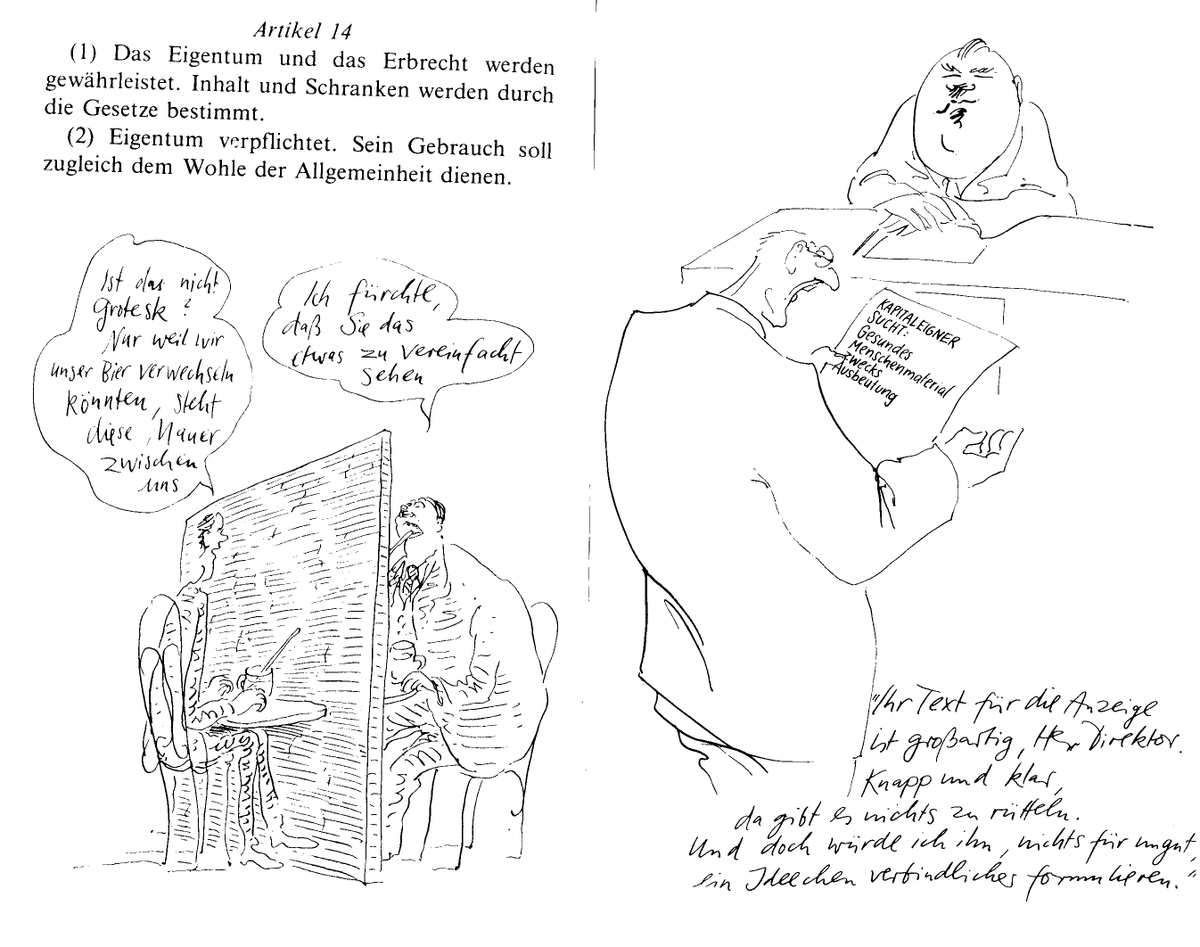 Artikel 14
(1) Das Eigentum und das Erbrecht werden
gewährleistet. Inhalt und Schranken werden durch
die Gesetze bestimmt.
(2) Eigentum verpflichtet. Sein Gebrauch soll
zugleich dem Wohle der Allgemeinheit dienen.
Ist das nicht
grotesk?
Nur weil wir
unser Bier verwechseln
könnten, steht
diese Mauer
zwischen
uns
Ich fürchte,
daß Sie das
etwas zu vereinfacht
sehen
KAPITALEIGNER
SUCHT:
Gesundes
Menschenmaterial
zwecks
Ausbeutung
"Ihr Text für die Anzeige
ist großartig, Herr Direktor.
Knapp und klar,
da gibt es nichts zu rütteln.
Und doch würde ich ihn, nichts für ungut,
ein Ideechen verbindlicher formulieren."